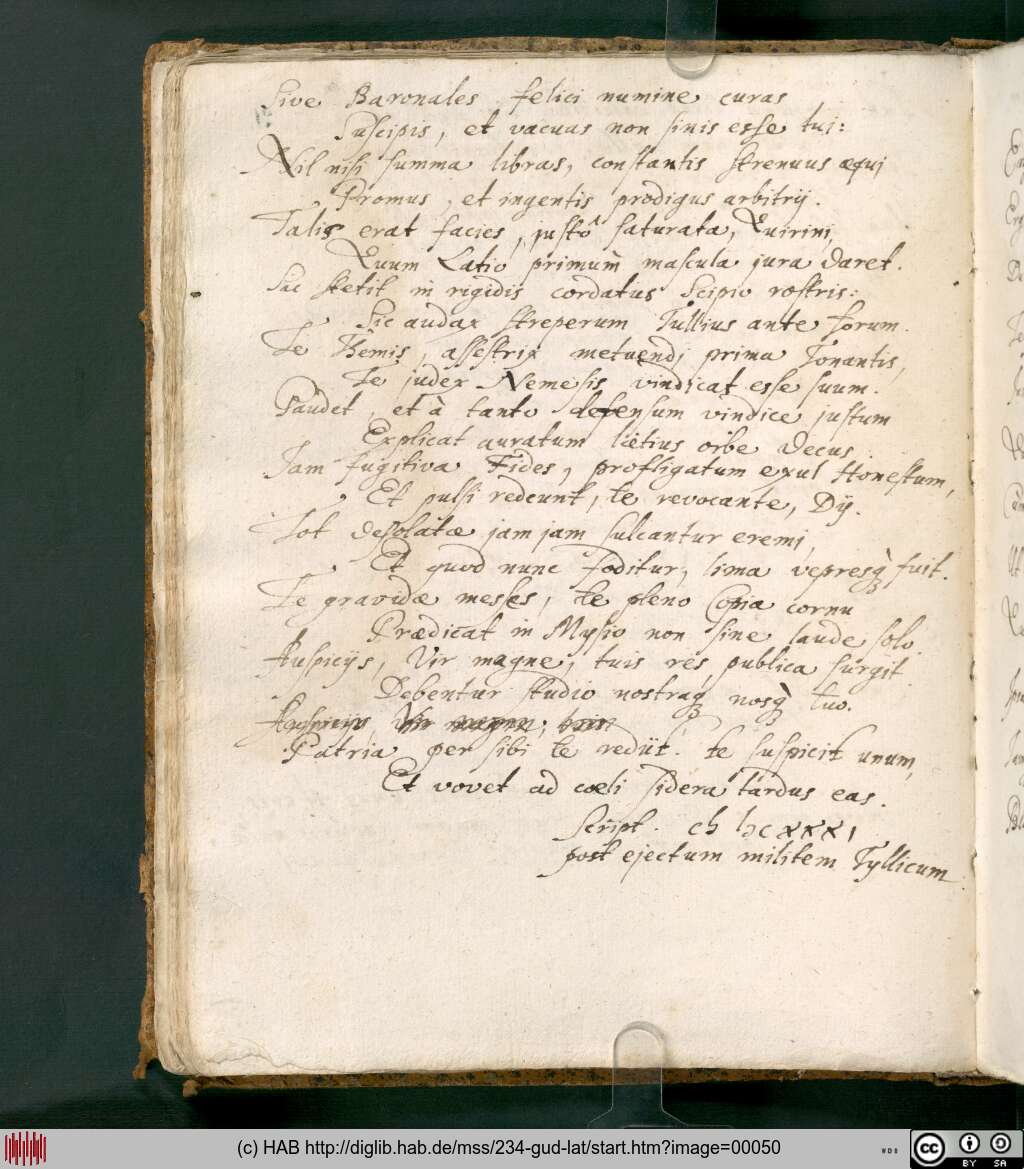 Sive Baronales felici numine curas
Suscipis, et vacuas non sinis esse tui:
Nil nisi summa libras, constantis strenuus æqui
Promus, et ingentis prodigus arbitrij.
Talis erat facies, justo saturata, Quirini,
Quum Latio primum mascula jura daret.
Sic stetit in rigidis cordatus Scipio rostris:
Sic audax streperum Tullius ante forum.
Te Themis, assestrix metuendi prima Tonantis,
Te judex Nemesis vindicat esse suum.
Gaudet, et à tanto defensum vindice justum
Explicat auratum lætius orbe decus.
Jam fugitiva Fides, profligatum exul Honestum,
Et pulsi redeunt, te revocante, Dij.
Tot desolatæ jam jam sulcantur eremi,
Et quod nunc foditur, lima vepresq́ fuit.
Te gravidæ messes, te pleno Copia cornu
Prædicat in Mysio non sine laude solo.
Auspicijs, Vir magne, tuis res publica surgit
Debentur studio nostraq nosq́ tuo.
Patria per sibi te rediit. te suspicit unum,
Et vovet ad cœli sidera tardus eas.
Script. cIɔ Iɔc XXXI
post ejectum militem Tyllicum
(c) HAB http://diglib.hab.de/mss/234-gud-lat/start.htm?image=00050
cc BY SA